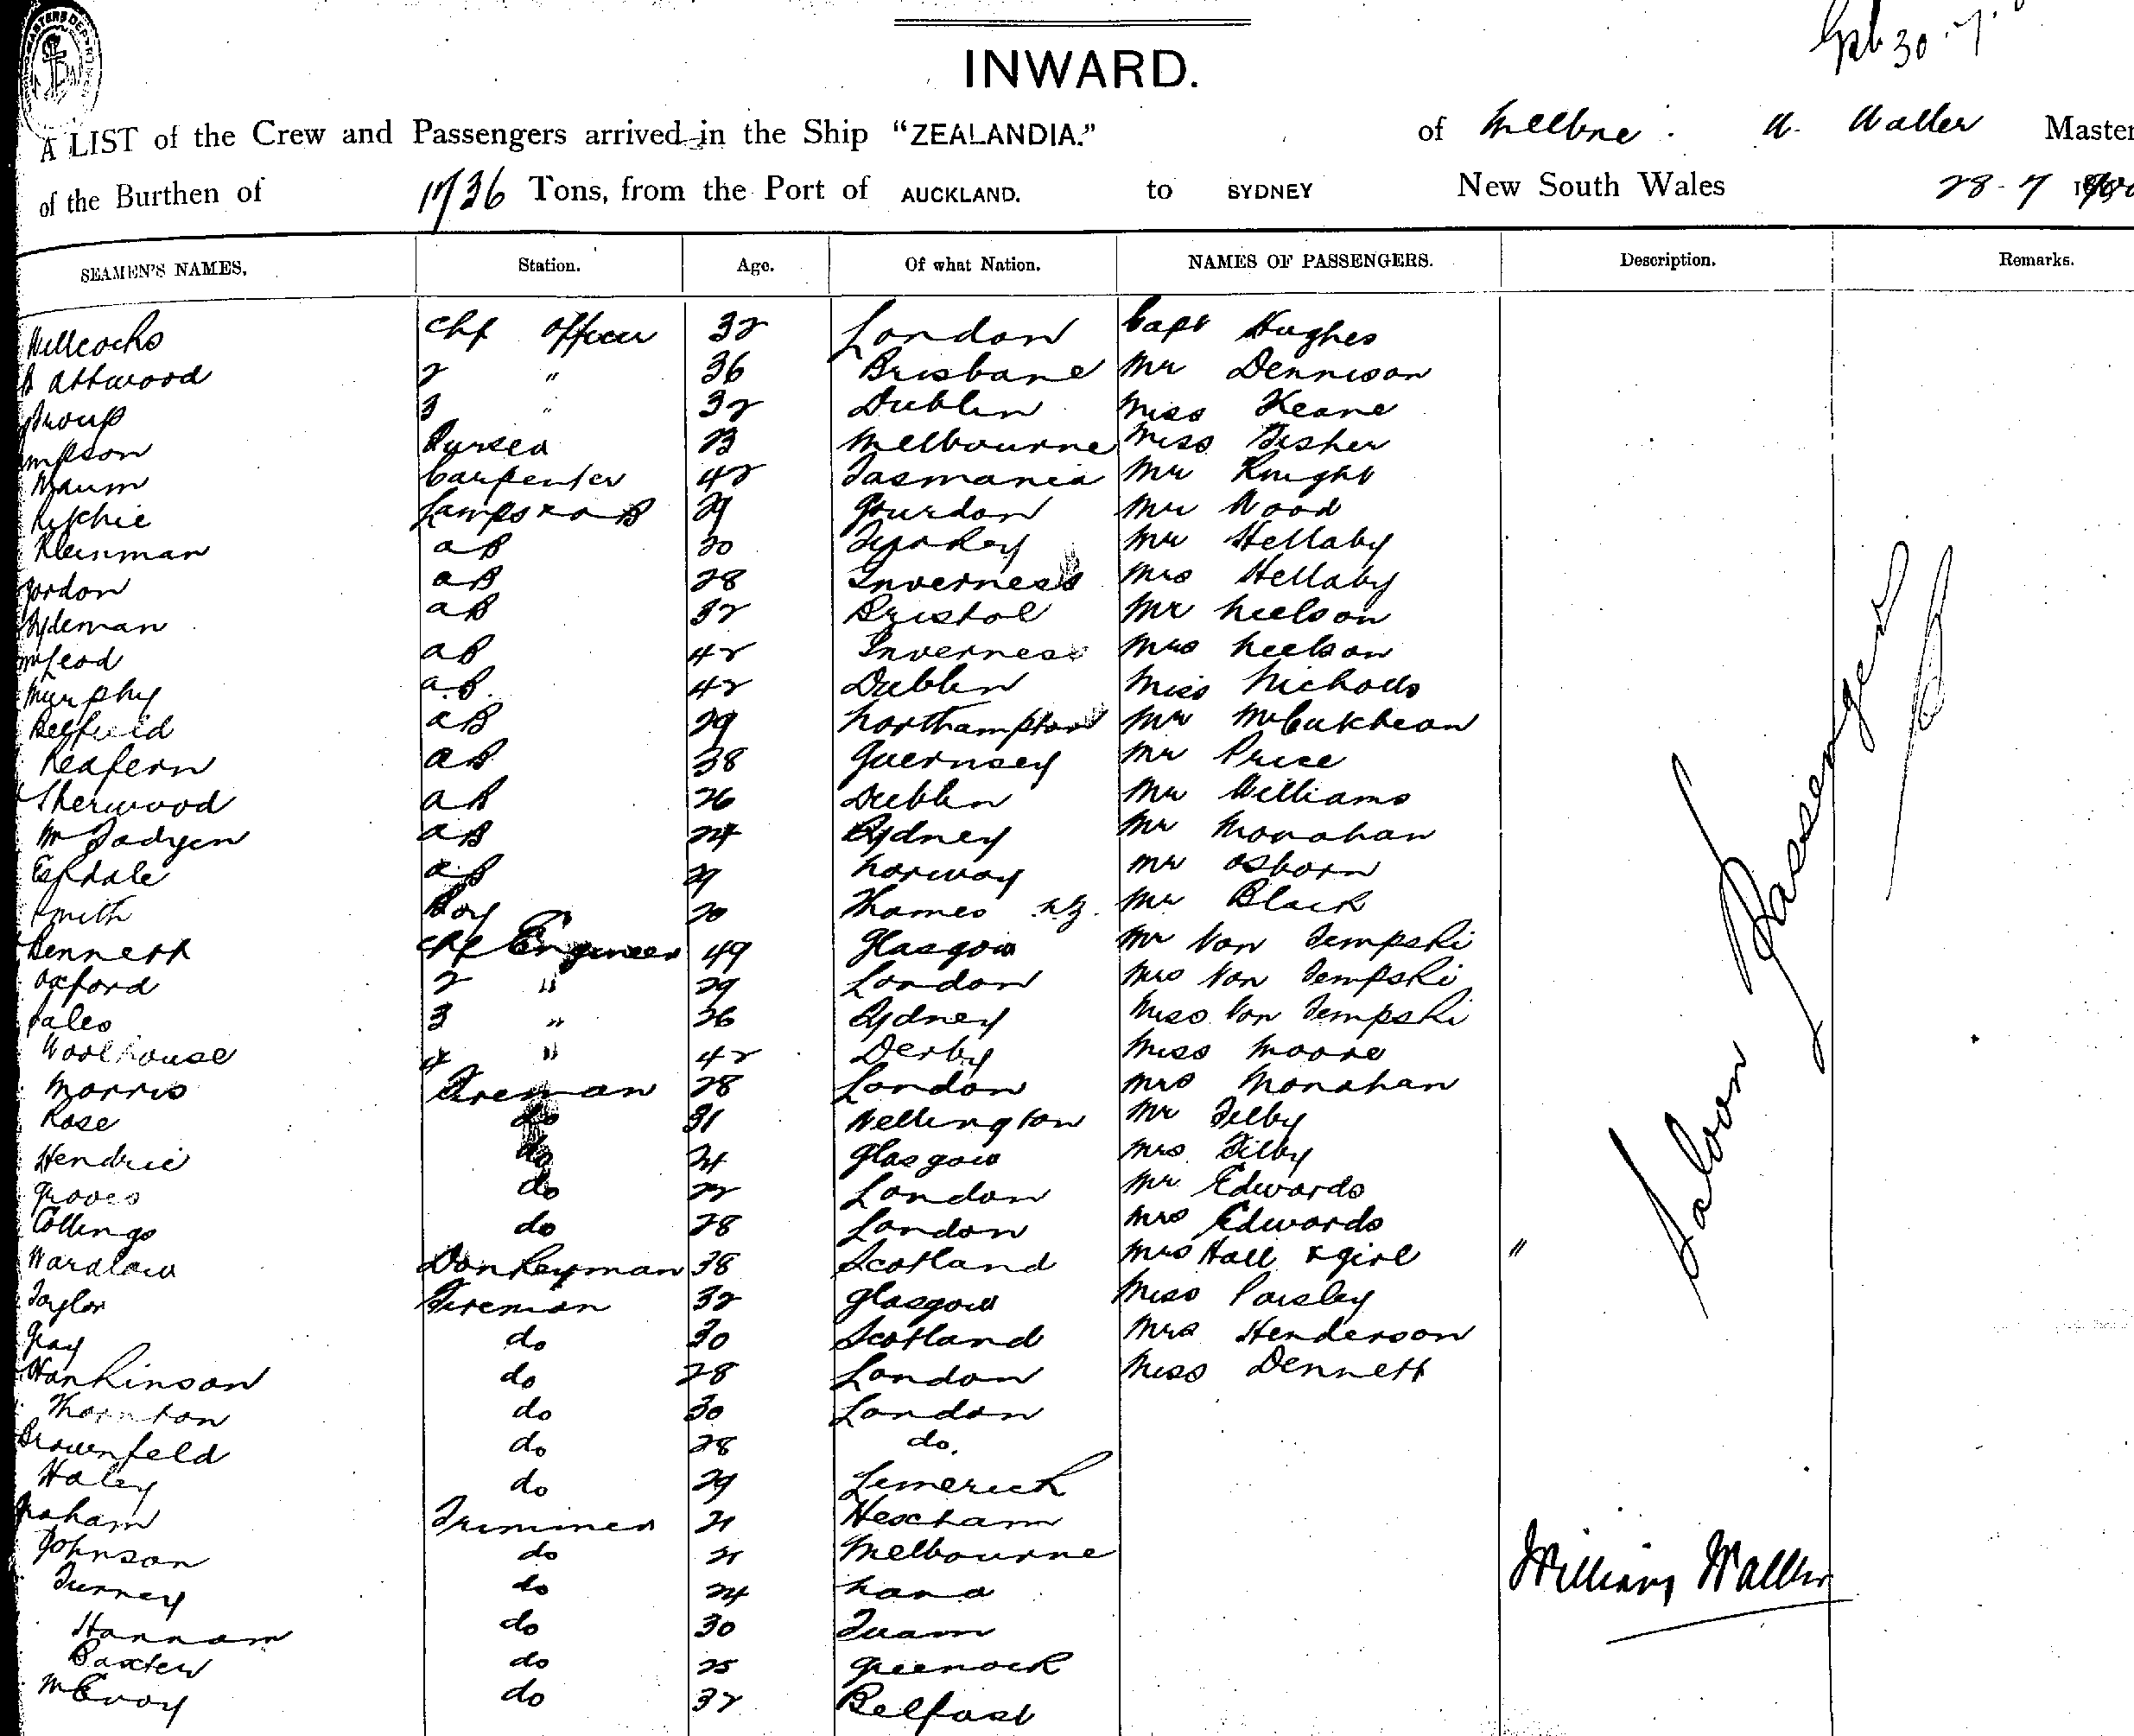 INWARD.
A LIST of the Crew and Passengers arrived in the Ship "ZEALANDIA." of Melbne. W. Waller Master
of the Burthen of Tons, from the Port of AUCKLAND. to SYDNEY New South Wales 28-7
SEAMEN'S NAMES. Station. Age. Of what Nation. NAMES OF PASSENGERS. Description. Remarks.
Willcocks Chf officer 32 London Capt Hughes
Attwood 2 " 36 Brisbane Mr Dennison
Troup 3 " 32 Dublin Miss Keane
mpson Purser 23 Melbourne Miss Fisher
Maum Carpenter 42 Tasmania Mr Knight
Ritchie Lamps & AB 29 Gourdon Mr Wood
Kleinman AB 30 Mr Hellaby
Gordon AB 28 Inverness Mrs Hellaby
Sydeman AB 32 Bristol Mr Neelson
McLeod AB 42 Inverness Mrs Neelson
Murphy A.B. 42 Dublin Miss Nicholls
Belfield AB 29 Northampton Mr McCutcheon
Redfern AB 38 Guernsey Mr Price
Sherwood AB 26 Dublin Mr Williams
McFadyen AB 24 Sydney Mr Monahan
Esdale AB 29 Norway Mr Osborn
Smith Boy 20 Thames NZ. Mr Black
Bennett Chf Engineer 49 Glasgow Mr Von Tempski
Oxford 2 " 29 London Mrs Von Tempski
3 " 26 Sydney Miss Von Tempski
Woolhouse 4 " 42 Derby Miss Moore
Morris Fireman 28 London Mrs Monahan
Rose do 31 Wellington Mr Filby
Hendrie do 24 Glasgow Mrs Filby
Groves do 22 London Mr Edwards
Collings do 28 London Mrs Edwards
Wardlaw Donkeyman 38 Scotland Mrs Hall & girl "
Taylor Fireman 32 Glasgow Miss Paisley
Gray do 30 Scotland Mrs Henderson
Hankinson do 28 London Miss Dennett
Thornton do 30 London
Brownfeld do 28 do.
Haley do 29 Limerick
Graham Trimmer 21 Hexham
Johnson do 21 Melbourne
Turney do 24
Hannam do 30 Tuam
Baxter do 25 Greenock
McEvoy do 32 Belfast
Saloon Passengers
William Waller